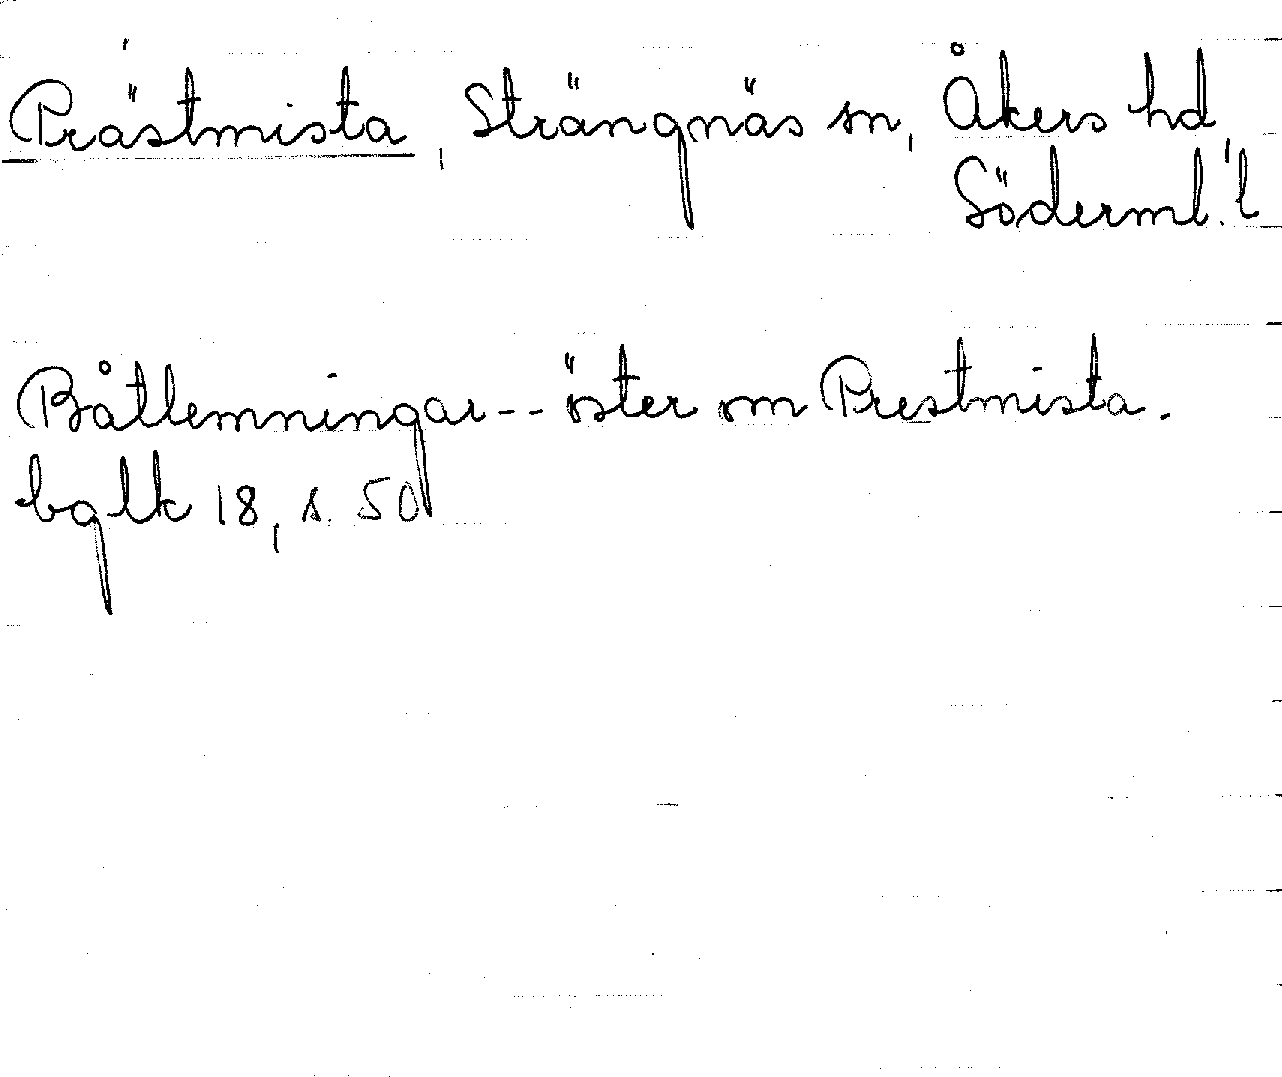 Prästmista, Strängnäs sn, Åkers hd,
Söderml. l
Båtlemningar -- öster om Prestmista.
bglk 18, s. 50